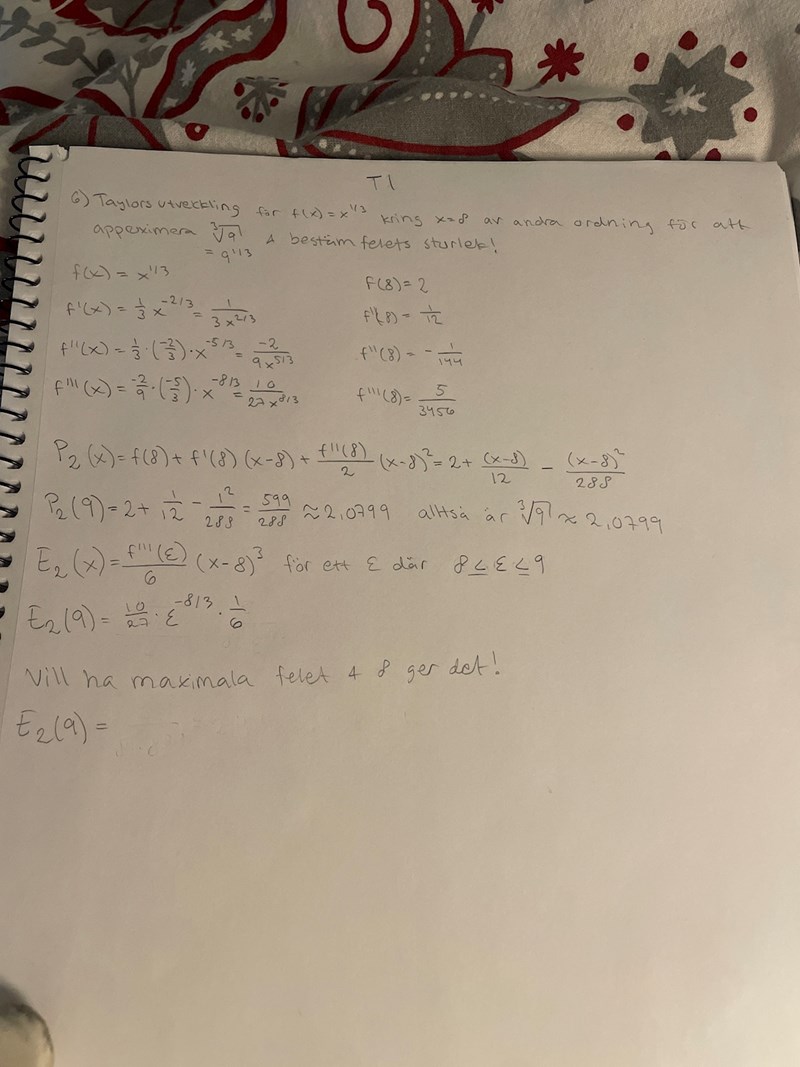 T1
6) Taylors utveckling för f(x) = x^1/3 kring x=8 av andra ordning för att
appeximera ∛9 & bestäm felets sturlek!
= 9^1/3
f(x) = x^1/3 f(8) = 2
f'(x) = 1/3 x^-2/3 = 1/(3x^2/3) f'(8) = 1/12
f''(x) = 1/3 · (-2/3) · x^-5/3 = -2/(9x^5/3) f''(8) = - 1/144
f'''(x) = -2/9 · (-5/3) · x^-8/3 = 10/(27x^8/3) f'''(8) = 5/3456
P₂(x) = f(8) + f'(8) (x-8) + f''(8)/2 (x-8)² = 2 + (x-8)/12 - (x-8)²/288
P₂(9) = 2 + 1/12 - 1²/288 = 599/288 ≈ 2,0799 alltså är ∛9 ≈ 2,0799
E₂(x) = f'''(ε)/6 (x-8)³ för ett ε där 8 ≤ ε ≤ 9
E₂(9) = 10/27 · ε^-8/3 · 1/6
Vill ha maximala felet & 8 ger det!
E₂(9) =